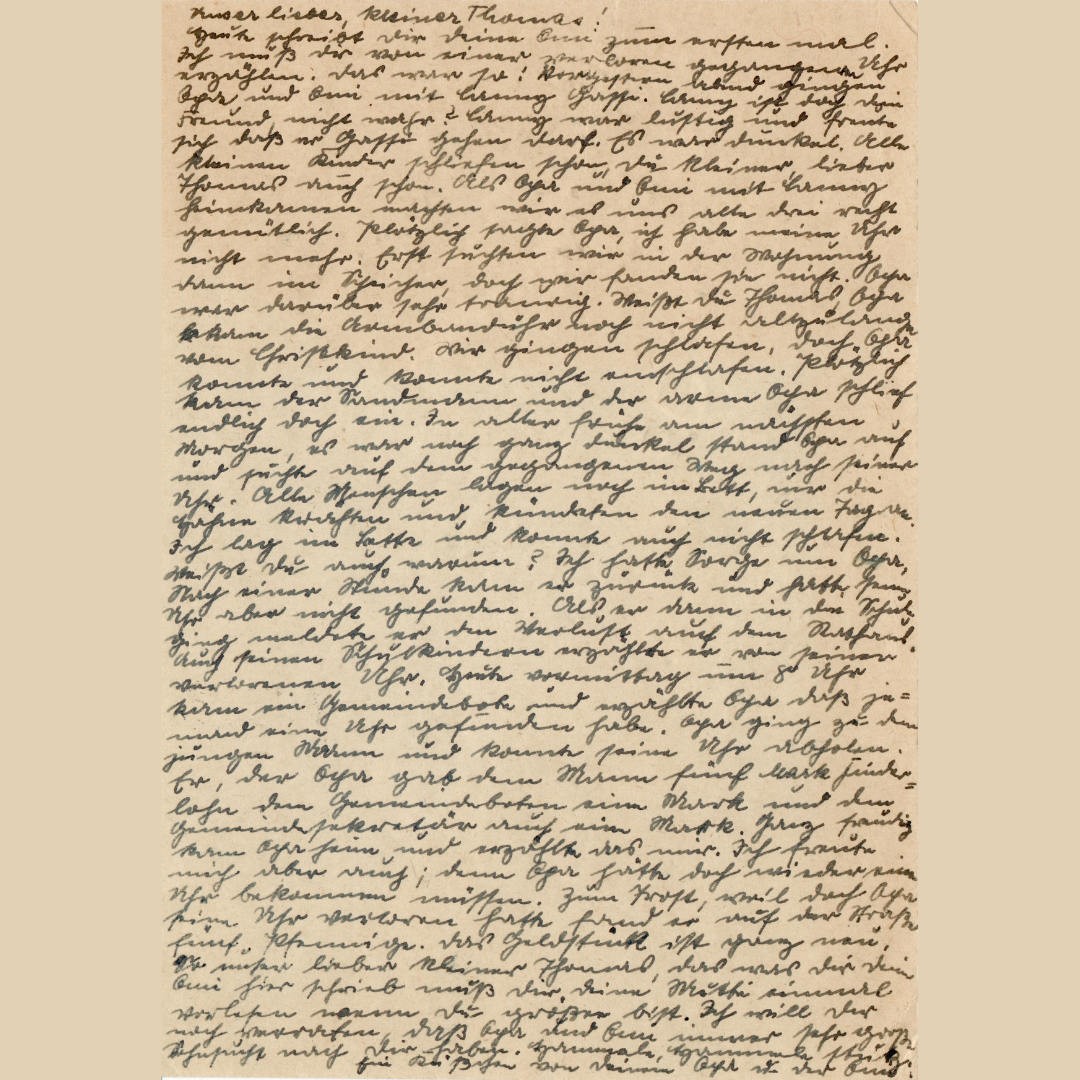 Unser lieber, kleiner Thomas!
Heute schreibt dir deine Omi zum ersten mal.
Ich muß dir von einer verloren gegangenen Uhr
erzählen. Das war so! Vorgestern Abend gingen
Opa und Omi mit Lanny Gassi. Lanny ist doch dein
Freund, nicht wahr? Lanny war lustig und freute
sich daß er Gassi gehen darf. Es war dunkel. Alle
kleinen Kinder schliefen schon, du kleiner, lieber
Thomas auch schon. Als Opa und Omi mit Lanny
heimkamen machten wir es uns alle drei recht
gemütlich. Plötzlich sagte Opa, ich habe meine Uhr
nicht mehr. Erst suchten wir in der Wohnung,
dann im Speicher, doch wir fanden sie nicht. Opa
war darüber sehr traurig. Weißt du Thomas, Opa
bekam die Armbanduhr noch nicht allzulange
vom Christkind. Wir gingen schlafen, doch Opa
konnte und konnte nicht einschlafen. Plötzlich
kam der Sandmann und der arme Opa schlief
endlich doch ein. In aller frühe am nächsten
Morgen, es war noch ganz dunkel stand Opa auf
und suchte auf dem gegangenen Weg nach seiner
Uhr. Alle Menschen lagen noch im Bett, nur die
Hähne krähten und kündeten den neuen Tag an.
Ich lag im Bette und konnte auch nicht schlafen.
Weißt du auch warum? Ich hatte Sorge um Opa.
Nach einer Stunde kam er zurück und hatte seine
Uhr aber nicht gefunden. Als er dann in die Schule
ging meldete er den Verlust auf dem Rathaus.
Auch seinen Schulkindern erzählte er von seiner
verlorenen Uhr. Heute vormittag um 8 Uhr
kam ein Gemeindebote und erzählte Opa daß je=
mand eine Uhr gefunden habe. Opa ging zu dem
jungen Mann und konnte seine Uhr abholen.
Er, der Opa gab dem Mann fünf Mark Finder=
lohn dem Gemeindeboten eine Mark und dem
Gemeindesekretär auch eine Mark. Ganz freudig
kam Opa heim und erzählte das mir. Ich freute
mich aber auch; denn Opa hätte doch wieder eine
Uhr bekommen müssen. Zum Trost, weil doch Opa
seine Uhr verloren hatte fand er auf der Straße
fünf Pfennige. Das Geldstück ist ganz neu.
So unser lieber kleiner Thomas, das was dir dein
Omi hier schrieb muß dir deine Mutti einmal
vorlesen wenn du größer bist. Ich will dir
noch verraten, daß Opa und Omi immer sehr große
Sehnsucht nach Dir haben. Hammele, Hammele
Ein Küßchen von deinem Opa u. der Omi.